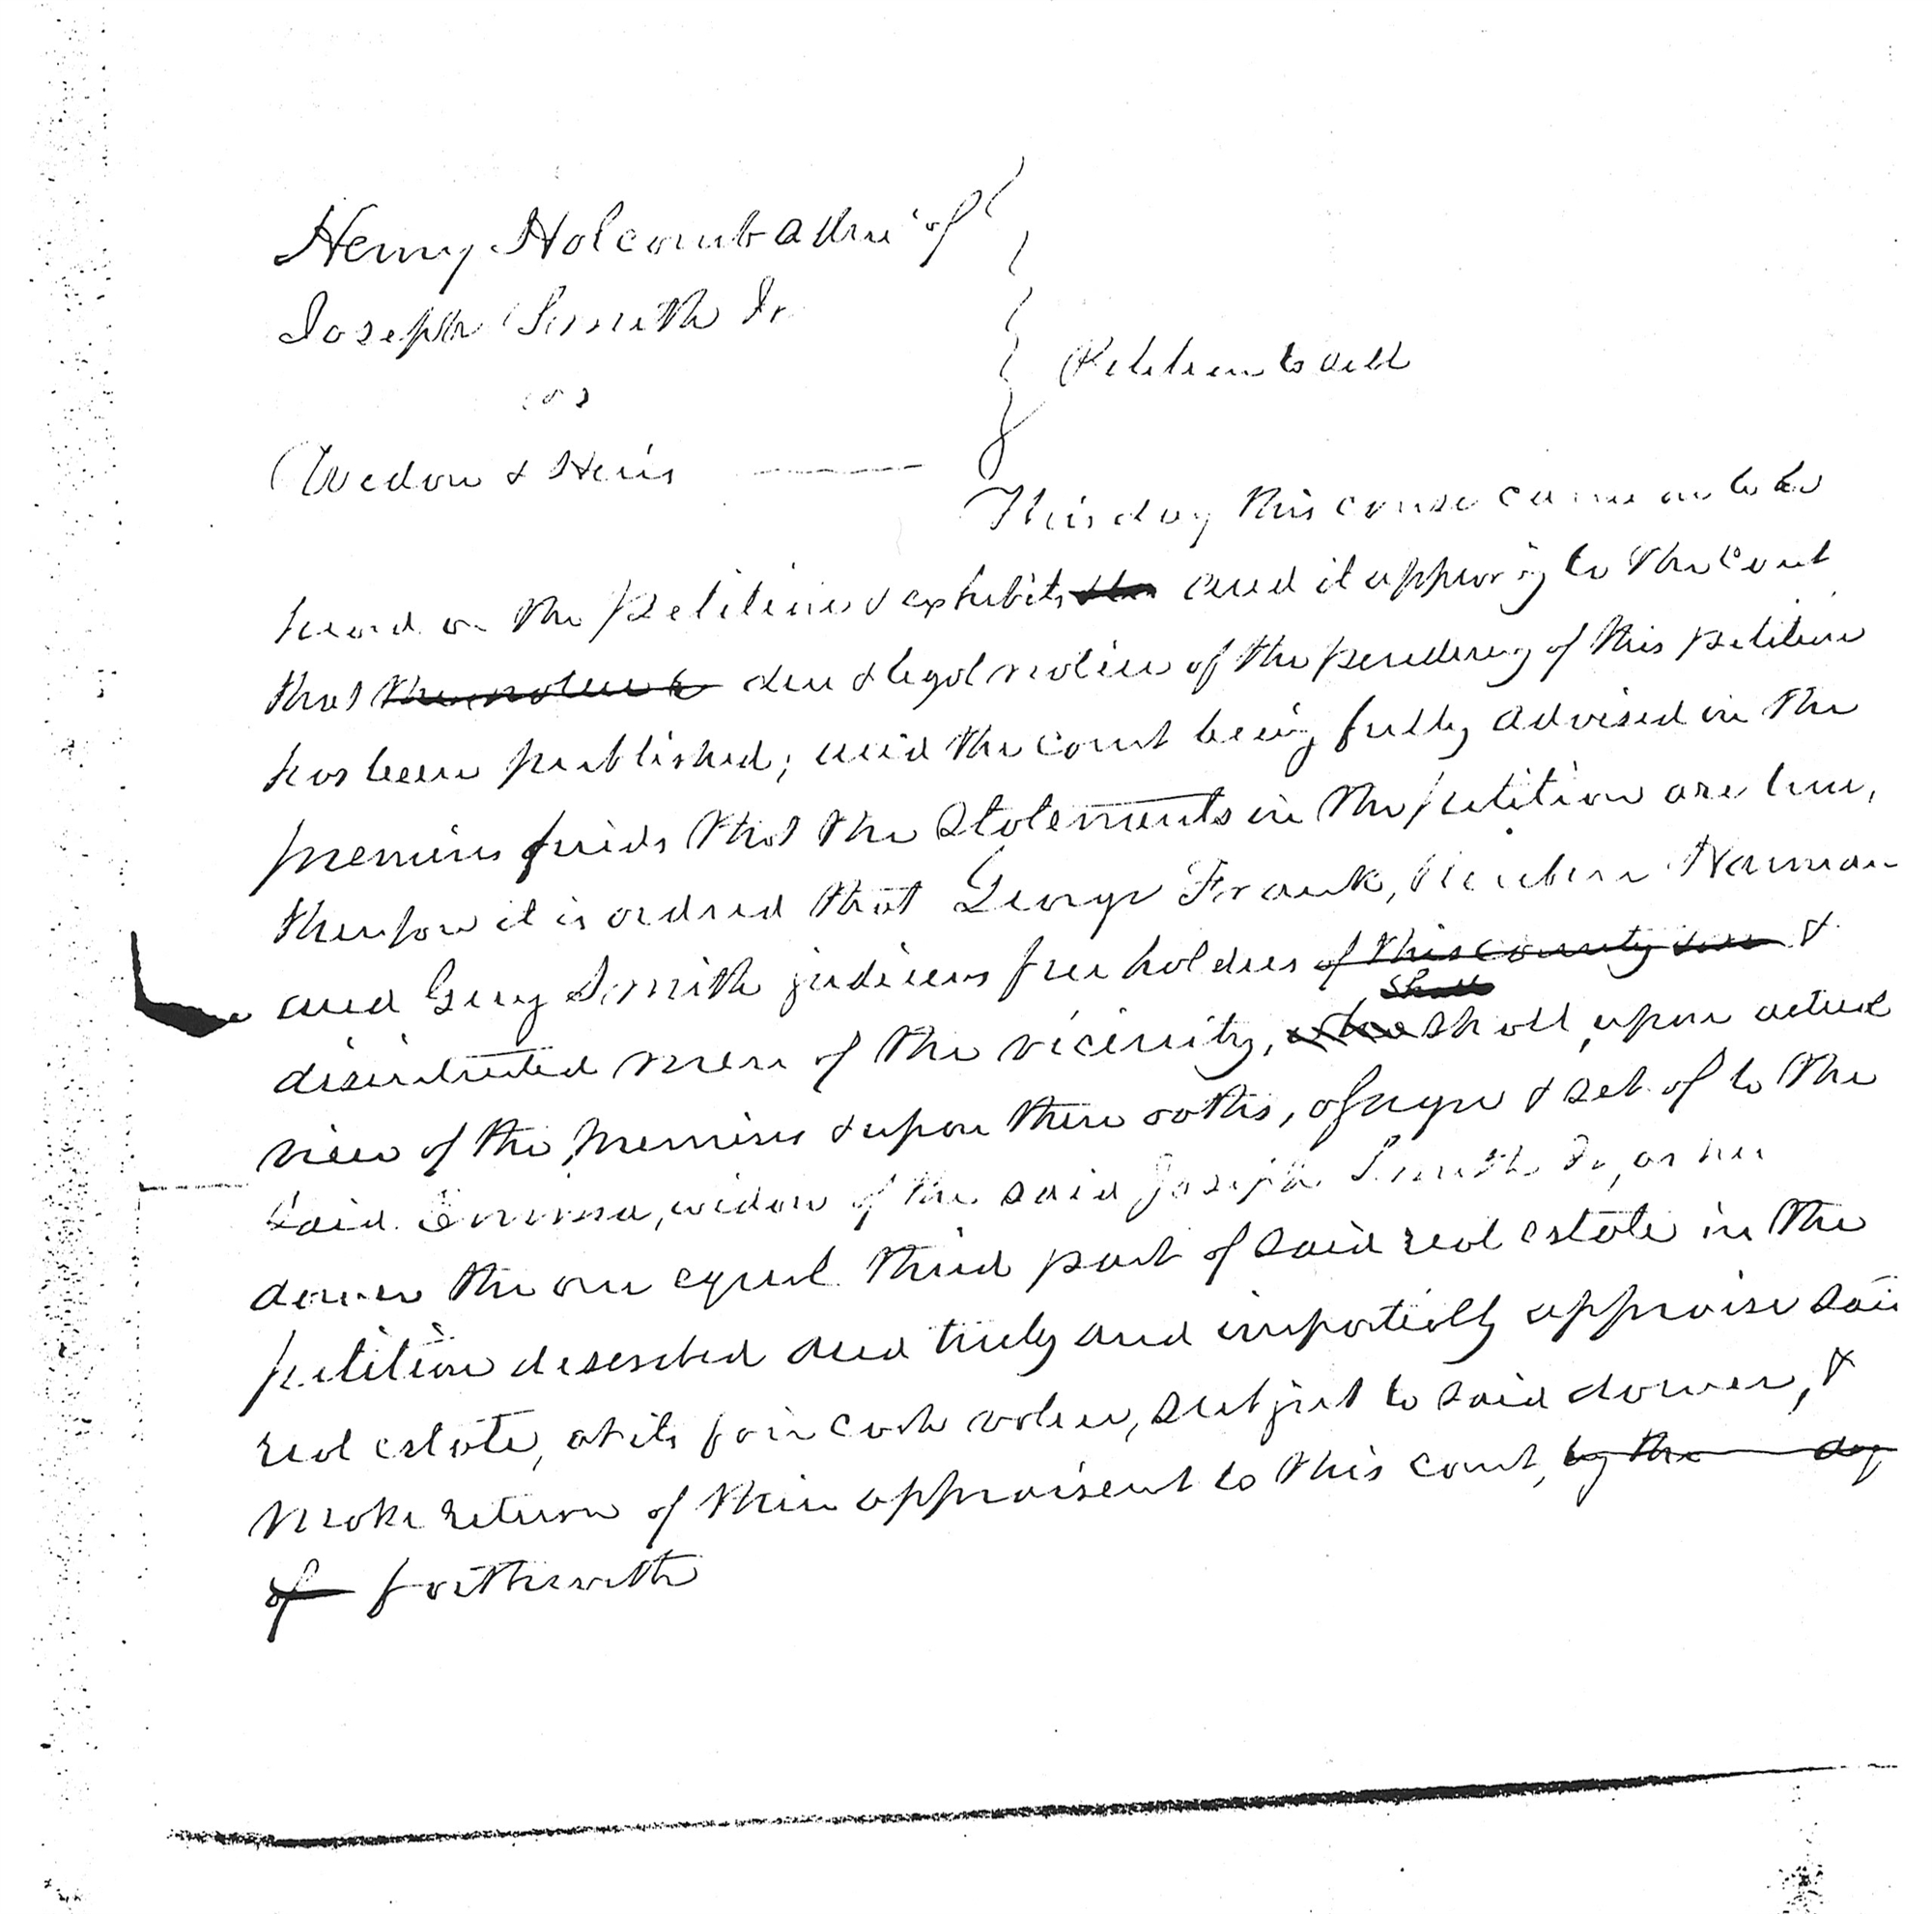 Henry Holcomb Adm. of
Joseph Smith Jr
vs
Widow & Heirs
Petition to sell
This day this cause came on to be
heard on the petition & exhibits and it appearing to the court
that the notice due & legal notice of the pendency of this petition
has been published; and the court being fully advised in the
premises finds that the statements in the petition are true,
therefore it is ordered that George Frank, Reuben Harman
and Smith judicious free holders of this county &
shall
disintrested men of the vicinity, who shall, upon actual
view of the premises & upon there oaths, assign & set of to the
said Emma, widow of the said Joseph Smith Jr, as her
dower the one equal third part of said real estate in the
petition described and truly and impartially appraise said
real estate, at its fair cash value, subject to said dower, &
make return of their appraisent to this court, by the day
of forthwith